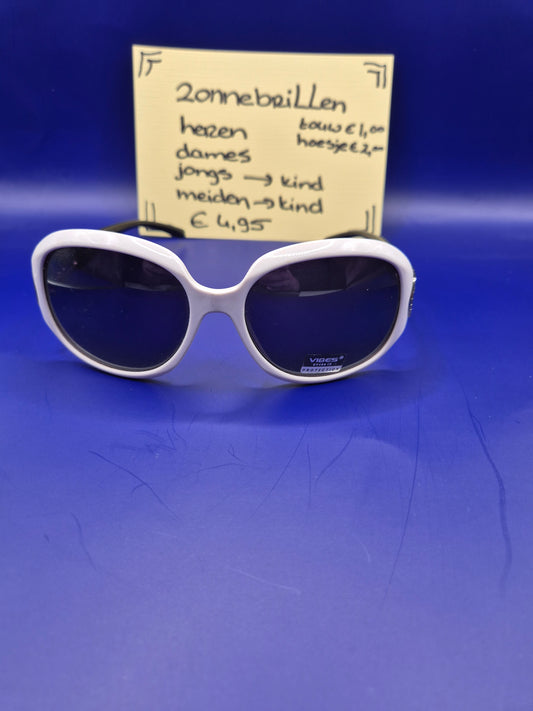 zonnebrillen
heren
touw € 1,00
hoesje € 2,00
dames
jongs → kind
meiden → kind
€ 4,95
VIBES
PROTECTION